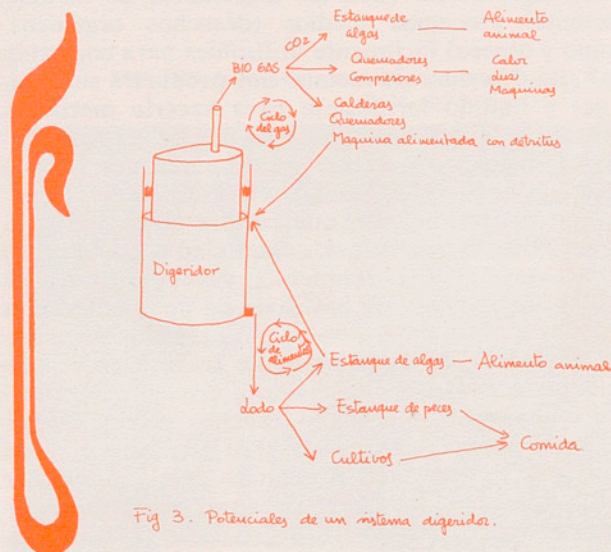 Estanque de
algas
Alimento
animal
CO2
BIO GAS
Quemadores
Compresores
Calor
Luz
Maquinas
Calderas
Quemadores
Maquina alimentada con detritus
Ciclo
del gas
Digeridor
Ciclo
de
alimentos
Estanque de algas — Alimento animal
Lodo
Estanque de peces
Cultivos
Comida
Fig 3. Potenciales de un sistema digeridor.